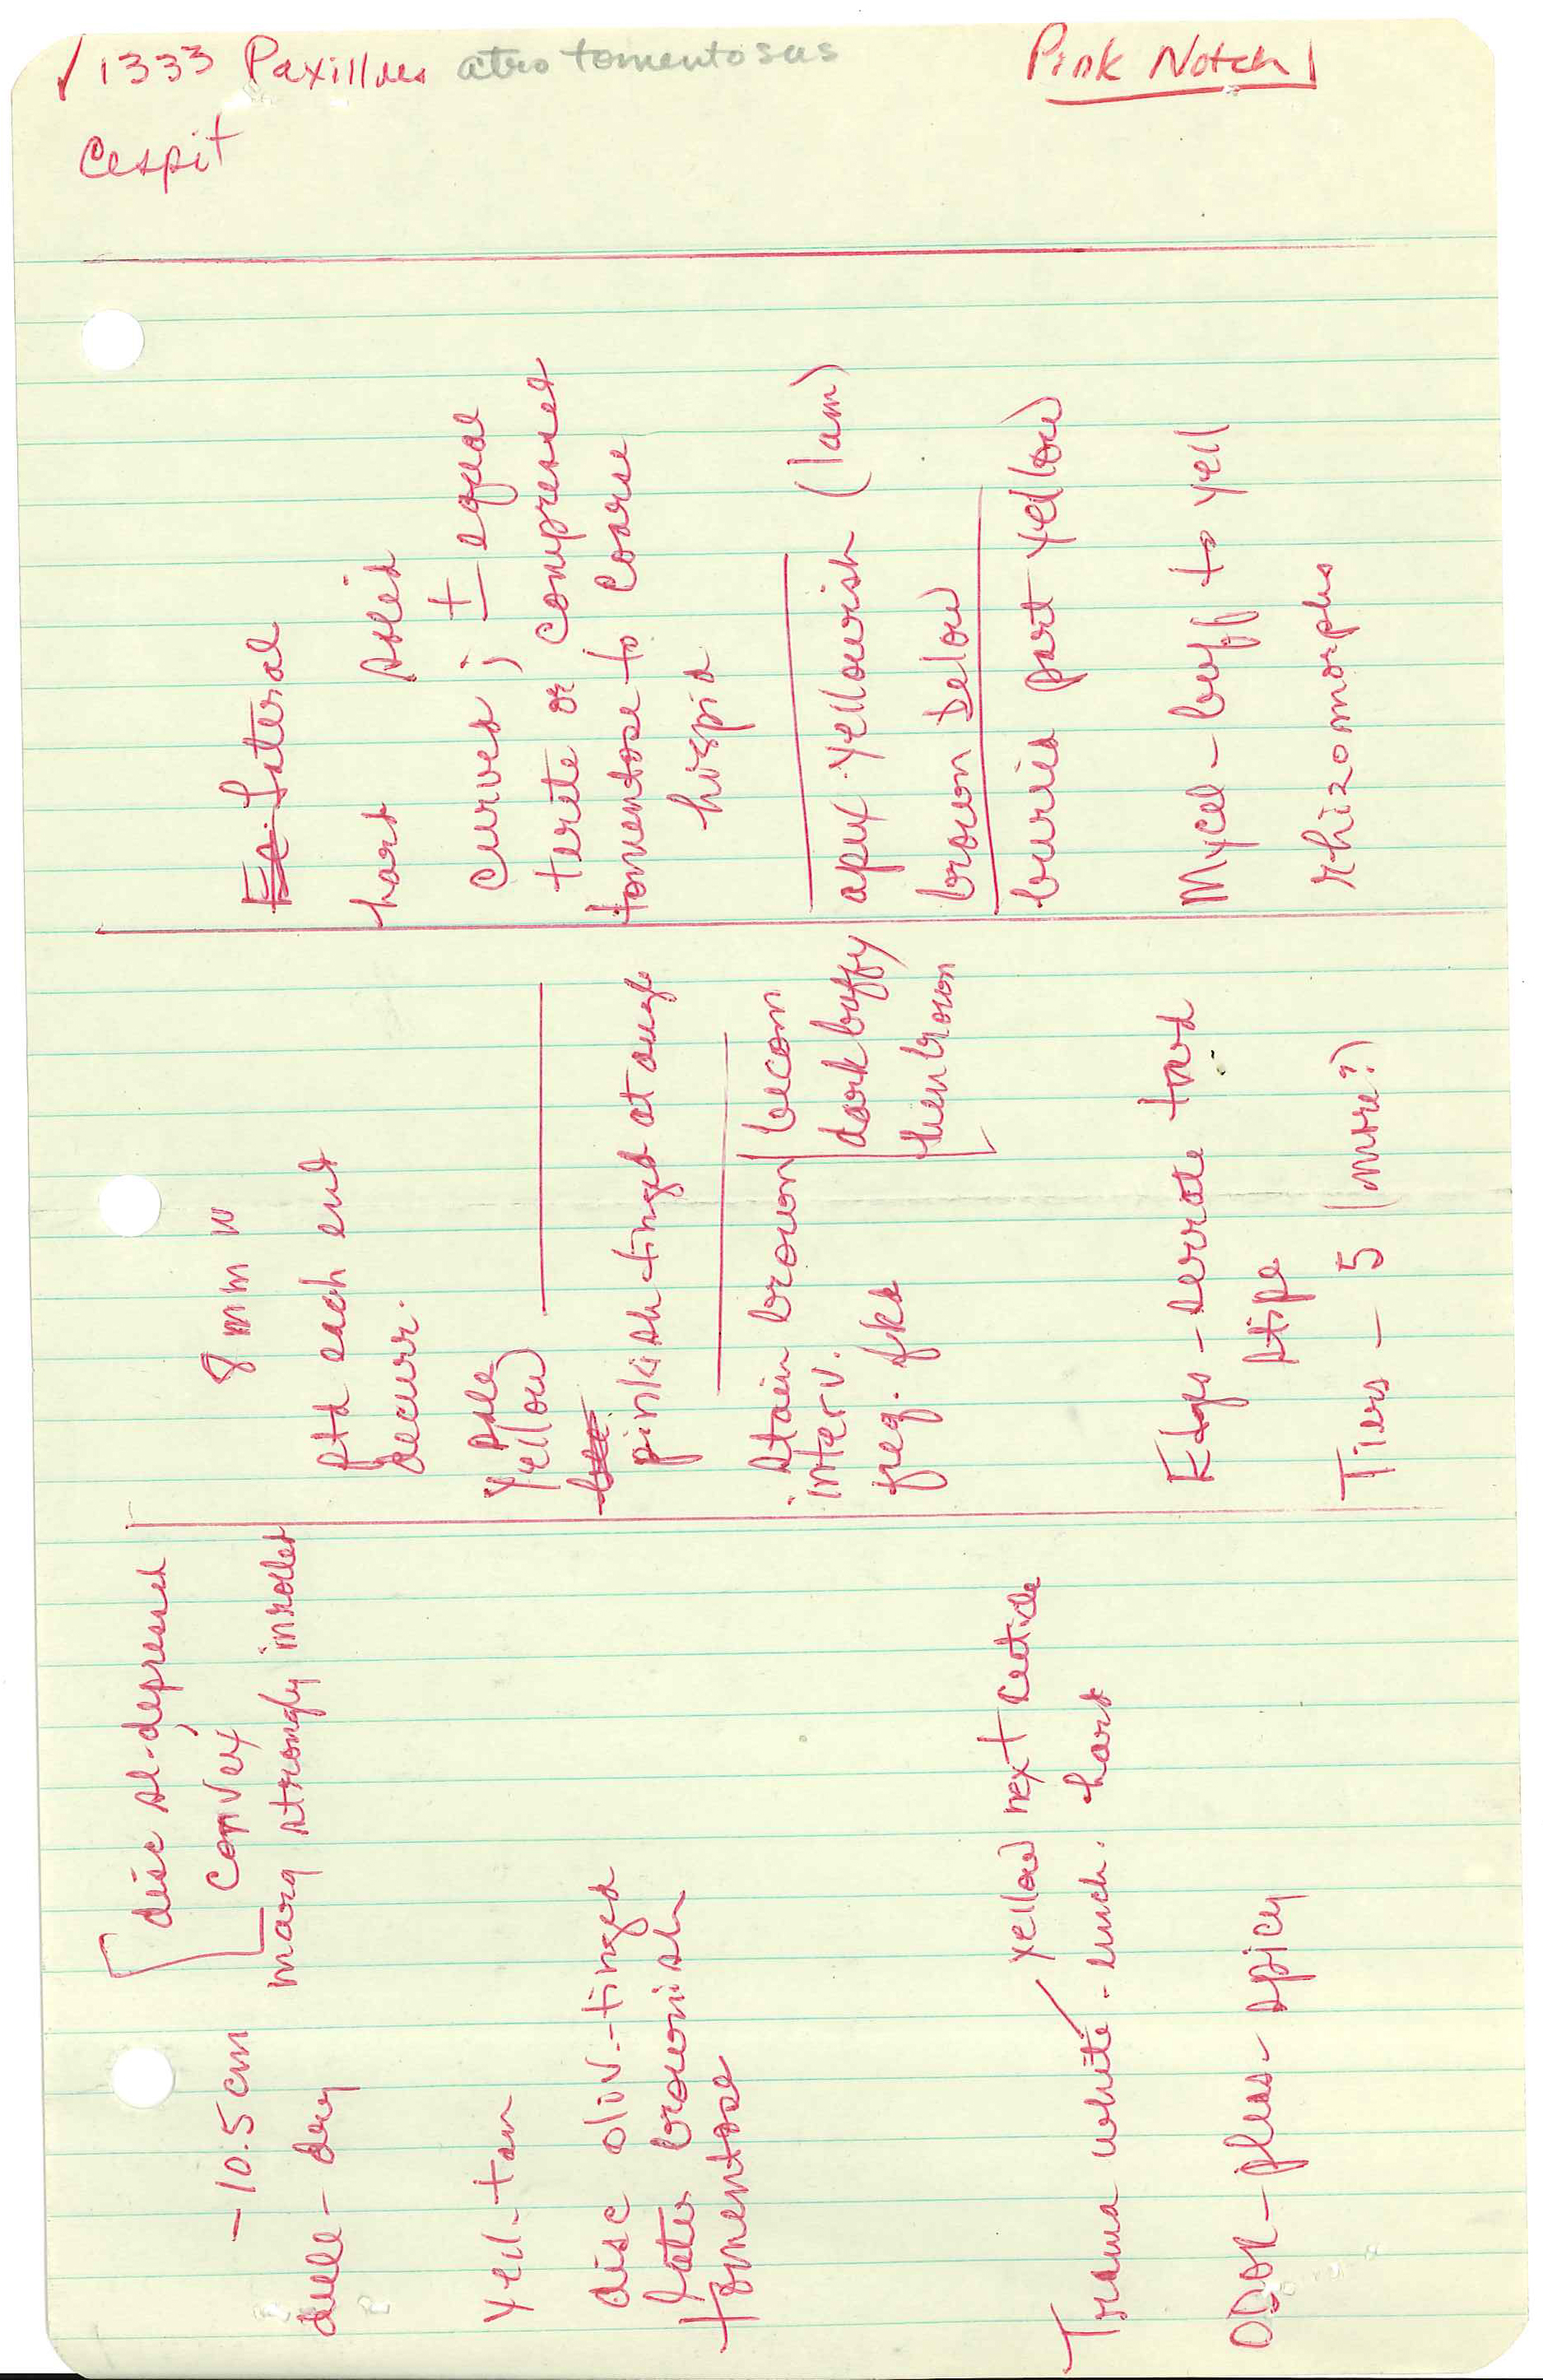 ✓1333 Paxillus atrotomentosus
Pink Notch
Cespit
– 10.5 cm
disc sl. depressed
convex
marg strongly inrolled
dull – dry
yell-tan
disc oliv.-tinged
later brownish
tomentose
Trama white – unch. hard
yellow next cuticle
ODOR – pleas – spicy
8 mm w
ptd each end
decurr.
pale
yellow
pinkish-tinged at
stain brown
becom
dark buffy
then brown
interv.
freq. fkd
Edges – serrate twd
stipe
Tiers – 5 (more?)
Lateral
hard solid
curved; ± equal
terete or compressed
tomentose to coarse
hispid
apex yellowish (lam)
brown below
buried part yellow
Mycel – buff to yell
rhizomorphs